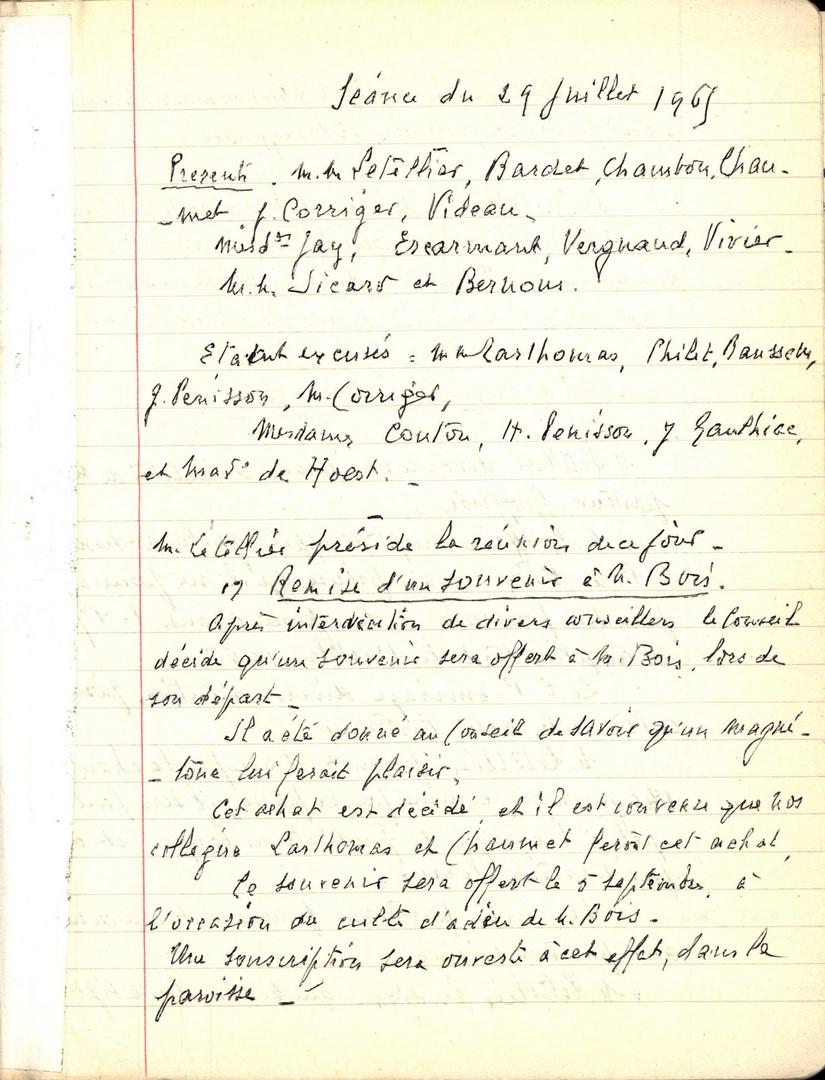 Séance du 29 Juillet 1965
Presents. M.M Letellier, Bardet, Chambon, Chau-
-met J. Corriger, Videau-
Mesd^es Jay, Escarmant, Vergnaud, Vivier-
M.M. Sicard et Bernous.
Etaient excusés = MM Lasthomas, Philit, Baussem,
J. Penisson, M. Corriger,
Mesdames Conton, H. Penisson, J Gauthier,
et Mad^e de Hoest. -
M. Letellier préside la réunion de ce jour -
1) Remise d'un souvenir à M. Bois.
Après intervention de divers conseillers le Conseil
décide qu'un souvenir sera offert à M. Bois, lors de
son départ -
Il a été donné au Conseil de savoir qu'un magné-
-tone lui ferait plaisir.
Cet achat est décidé, et il est convenu que nos
collègues Lasthomas et Chaumet feront cet achat.
Ce souvenir sera offert le 5 septembre, à
l'occasion du culte d'adieu de M. Bois -
Une souscription sera ouverte à cet effet, dans la
paroisse -